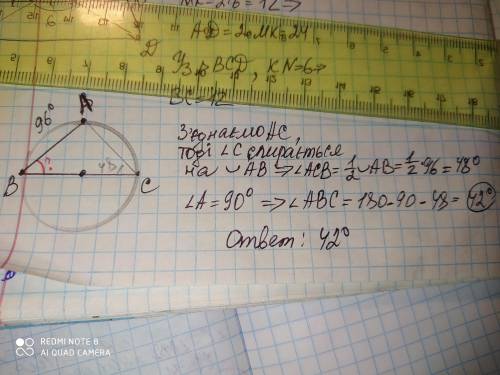 MK=2·6=12⇒
AD=2·MK=24
D
У з в BCD, KN=6⇒
BC=12
96°
A
B
?
48°
C
З'єднаємо AC,
тоді ∠C спирається
на ◡AB ⇒ ∠ACB = 1/2 ◡AB = 1/2·96 = 48°
∠A = 90° ⇒ ∠ABC = 180-90-48 = 42°
Ответ: 42°
REDMI NOTE 8
AI QUAD CAMERA